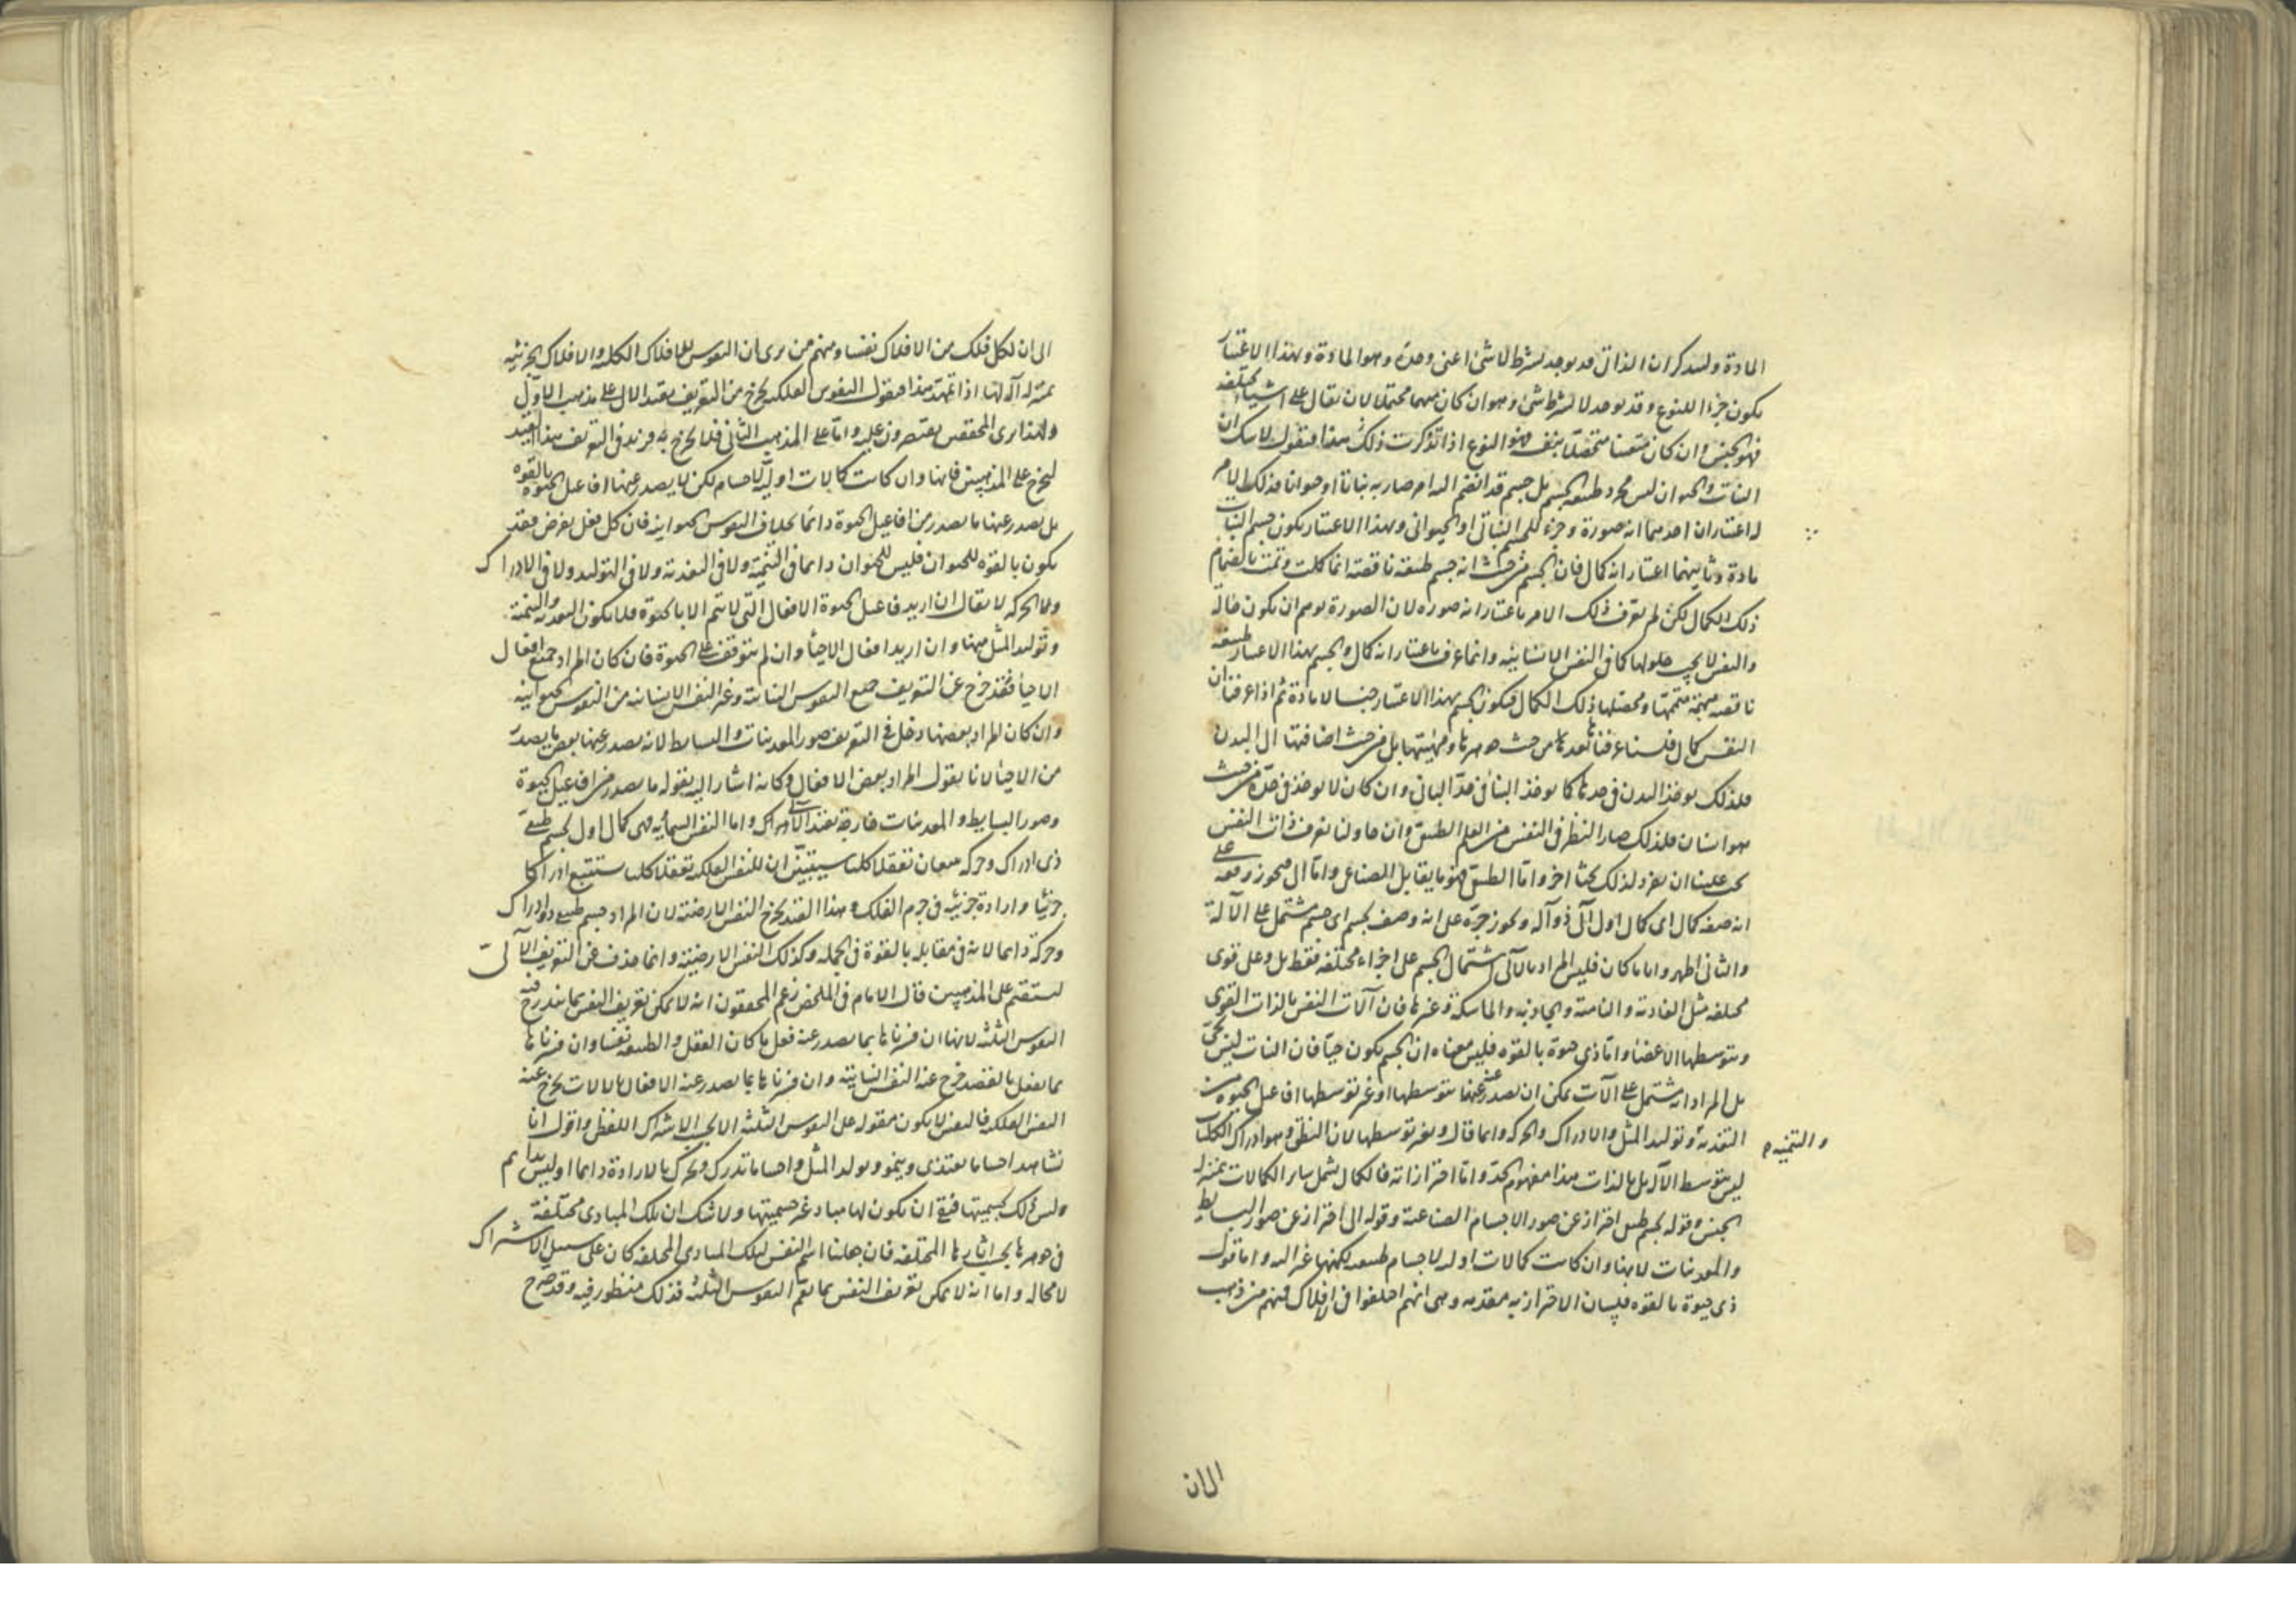 المادة ولنذكر ان الذاتى قد يوجد بشرط لا شئ اعنى وحده وهو المادة وبهذا الاعتبار
يكون جزءا للنوع وقد يوجد لا بشرط شئ وهو ان كان مبهما محتملا لان يقال على اشياء مختلفة
فهو الجنس وان كان متعينا متحصلا بنفسه فهو النوع اذا تذكرت ذلك هذا فنقول لا شك ان
النبات والحيوان ليس مجرد طبيعة الجسم بل جسم قد انضم اليه امر صار به نباتا او حيوانا فذلك الامر
له اعتباران احدهما انه صورة وجزء للجسم النباتى او الحيوانى وبهذا الاعتبار يكون جسم النبات
مادة وثانيهما اعتبار انه كمال فان الجسم من حيث انه جسم طبيعة ناقصة انما كملت وتمت بانضمام
ذلك الكمال لكن لم يعرف ذلك الامر باعتبار انه صورة لان الصورة يوهم ان يكون حالة
والنفس لا يجب حلولها كما فى النفس الانسانية وانما عرف باعتبار انه كمال والجسم بهذا الاعتبار طبيعة
ناقصة مبهمة متممها ومحصلها ذلك الكمال فيكون الجسم بهذا الاعتبار جنسا لا مادة ثم اذا عرفنا ان
النفس كمال فلسنا عرفناها بعد من حيث جوهرها ومهيتها بل من حيث اضافتها الى البدن
فلذلك يوخذ البدن فى حدها كما يوخذ البناء فى حد البانى وان كان لا يوخذ فى حده من حيث
هو انسان فلذلك صار النظر فى النفس من العلم الطبيعى وان حاولنا تعرف ذات النفس
يجب علينا ان نفرد لذلك بحثا اخر واما الطبيعى فهو ما يقابل الصناعى واما آلى فيجوز رفعه على
انه صفة كمال اى كمال اول آلى ذو آلة ويجوز جره على انه وصف لجسم اى جسم مشتمل على الآلة
والثانى اظهر واياما كان فليس المراد بالآلى اشتمال الجسم على اجزاء مختلفة فقط بل وعلى قوى
مختلفة مثل الغاذية والنامية والجاذبة والماسكة وغيرها فان آلات النفس بالذات القوى
وبتوسطها الاعضاء واما ذى حيوة بالقوة فليس معناه ان الجسم يكون حيا فان النبات ليس بحى
بل المراد انه يشتمل على آلات يمكن ان يصدر عنه بتوسطها او غير توسطها افاعيل الحيوة من
التغذية وتوليد المثل والادراك والحركة وانما قال وبغير توسطها لان النطق وهو ادراك الكليات
والتنمية
ليس بتوسط الآلة بل بالذات هذا مفهوم الحد واما احترازاته فالكمال يشمل ساير الكمالات بمنزلة
الجنس وقوله لجسم طبيعى احتراز عن صور الاجسام الصناعية وقوله آلى احتراز عن صور البسايط
والمعدنيات لانها وان كانت كمالات اولية لاجسام طبيعية لكنها غير آلية واما قوله
ذى حيوة بالقوة فبيان الاحتراز به مقدمة وهى انهم اختلفوا فى الافلاك فمنهم من ذهب
الى ان
الى ان لكل فلك من الافلاك نفسا ومنهم من يرى ان النفوس للافلاك الكلية والافلاك الجزئية
بمنزلة آلة لها اذا تمهد هذا فنقول النفوس الفلكية يخرج من التعريف بقيد الآلى على مذهب الاول
ولهذا ترى المحققين يقتصرون عليه واما على المذهب الثانى فلا يخرج به فزيد فى التعريف هذا القيد
ليخرج على المذهبين فانها وان كانت كمالات اولية لاجسام لكن لا يصدر عنها افاعيل الحيوة بالقوة
بل يصدر عنها ما يصدر من افاعيل الحيوة دائما بخلاف النفوس الحيوانية فان كل فعل يفرض فقد
يكون بالقوة للحيوان فليس للحيوان دائما فى التنمية ولا فى التغذية ولا فى التوليد ولا فى الادراك
ولا الحركة لا يقال ان اريد بافاعيل الحيوة الافعال التى لا يتم الا بالحيوة فلا يكون التغذية والتنمية
وتوليد المثل منها وان اريد افعال الاحياء وان لم يتوقف على الحيوة فان كان المراد جميع افعال
الاحياء فقد خرج عن التعريف جميع النفوس النباتية وغير النفس الانسانية من النفوس الحيوانية
وان كان المراد بعضها دخل فى التعريف صور المعدنيات والبسايط لانه يصدر عنها بعض ما يصدر
من الاحياء لانا نقول المراد بعض الافعال وكانه اشار اليه بقوله ما يصدر من افاعيل الحيوة
وصور البسايط والمعدنيات خارجة بقيد الآلى واما النفس السمائية فهى كمال اول لجسم طبيعى
ذى ادراك وحركة يتبعان تعقلا كليا سيتبين ان للنفس الفلكية تعقلا كليا يستتبع ادراكا
جزئيا وارادة جزئية فى جرم الفلك وبهذا القيد يخرج النفس الارضية لان المراد جسم طبيعى ذو ادراك
وحركة دائما لانه فى مقابلة بالقوة فى الجملة وكذلك النفس الارضية وانما حذف عن التعريف الآلى
ليستقيم على المذهبين قال الامام فى الملخص زعم المحققون انه لا يمكن تعريف النفس بما يندرج فيه
النفوس الثلثة لانها ان فسرناها بما يصدر عنه فعل ما كان العقل والطبيعة نفسا وان فسرناها
بما يفعل بالقصد خرج عنه النفس النباتية وان فسرناها بما يصدر عنه الافعال بالآلات يخرج عنه
النفس الفلكية فالنفس لا يكون مقولة على النفوس الثلثة الا بحسب الاشتراك اللفظى واقول انا
نشاهد اجساما يغتذى وينمو ويولد المثل واجساما تدرك وتحرك بالارادة دائما او ليس بدائم
وليس ذلك لجسميتها فبقى ان يكون لها مباد غير جسميتها ولا شك ان تلك المبادى مختلفة
فى جوهرها بحسب آثارها المختلفة فان جعلنا اسم النفس لتلك المبادى المختلفة كان على سبيل الاشتراك
لا محالة واما انه لا يمكن تعريف النفس بما يعم النفوس الثلثة فذلك منظور فيه وقد صرح